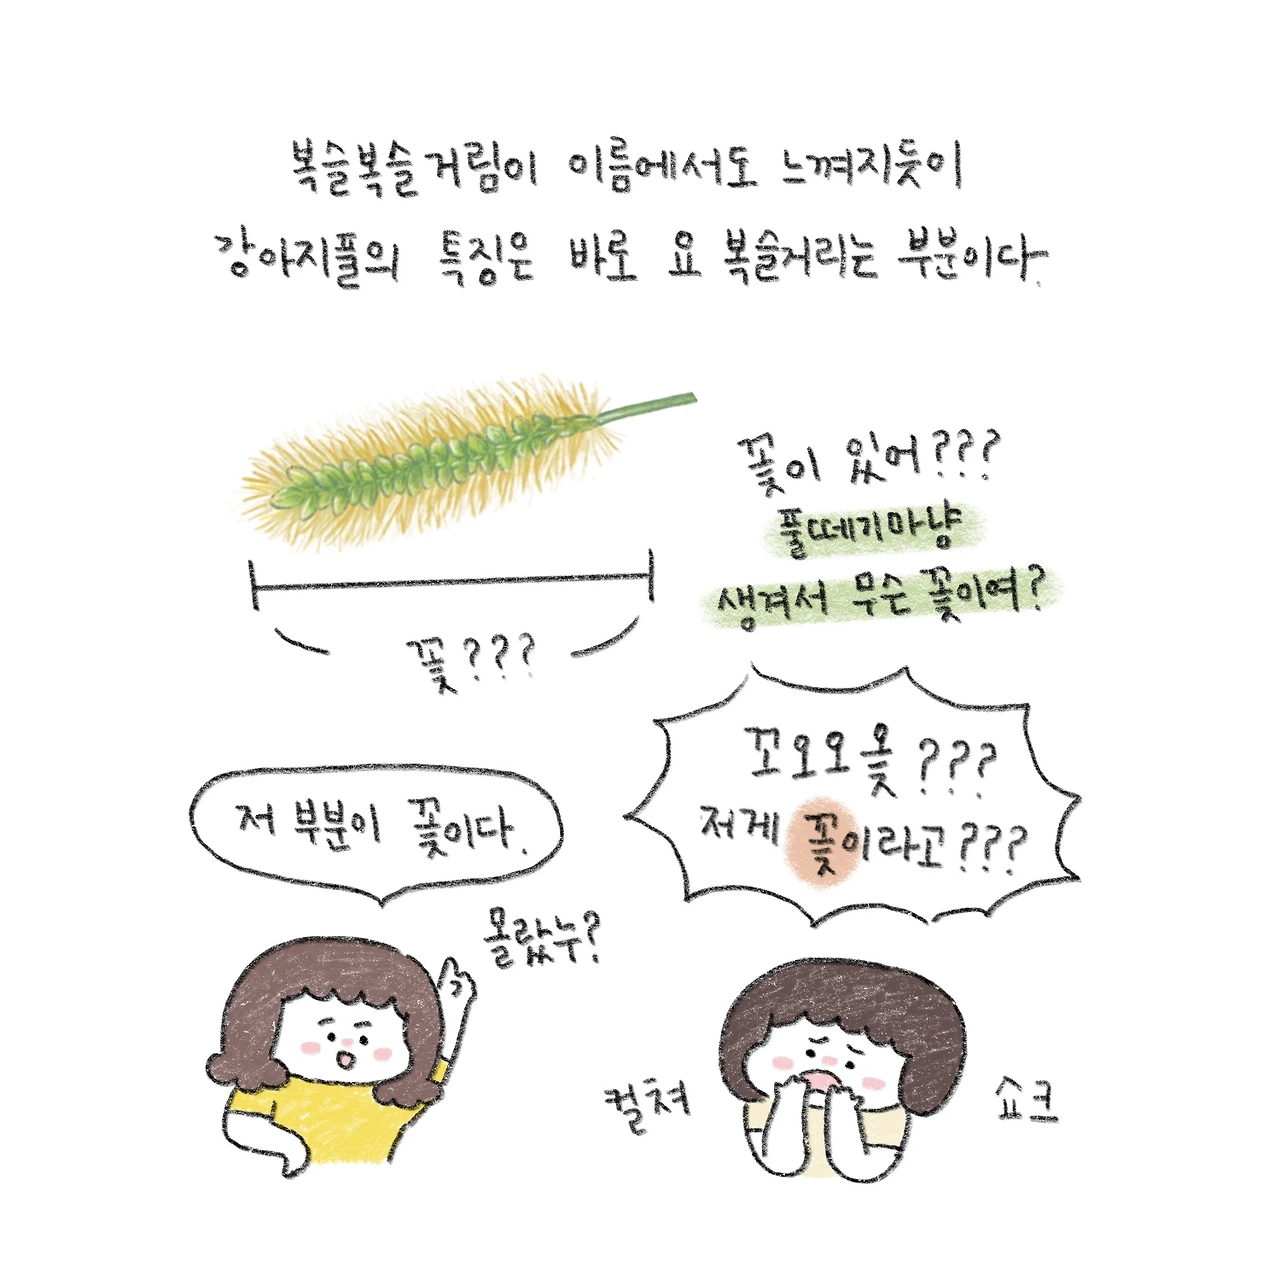 복슬복슬거림이 이름에서도 느껴지듯이
강아지풀의 특징은 바로 요 복슬거리는 부분이다.
꽃이 있어???
풀떼기마냥
생겨서 무슨 꽃이여?
꽃???
꼬오오옻???
저게 꽃이라고???
저 부분이 꽃이다.
몰랐누?
컬쳐 쇼크